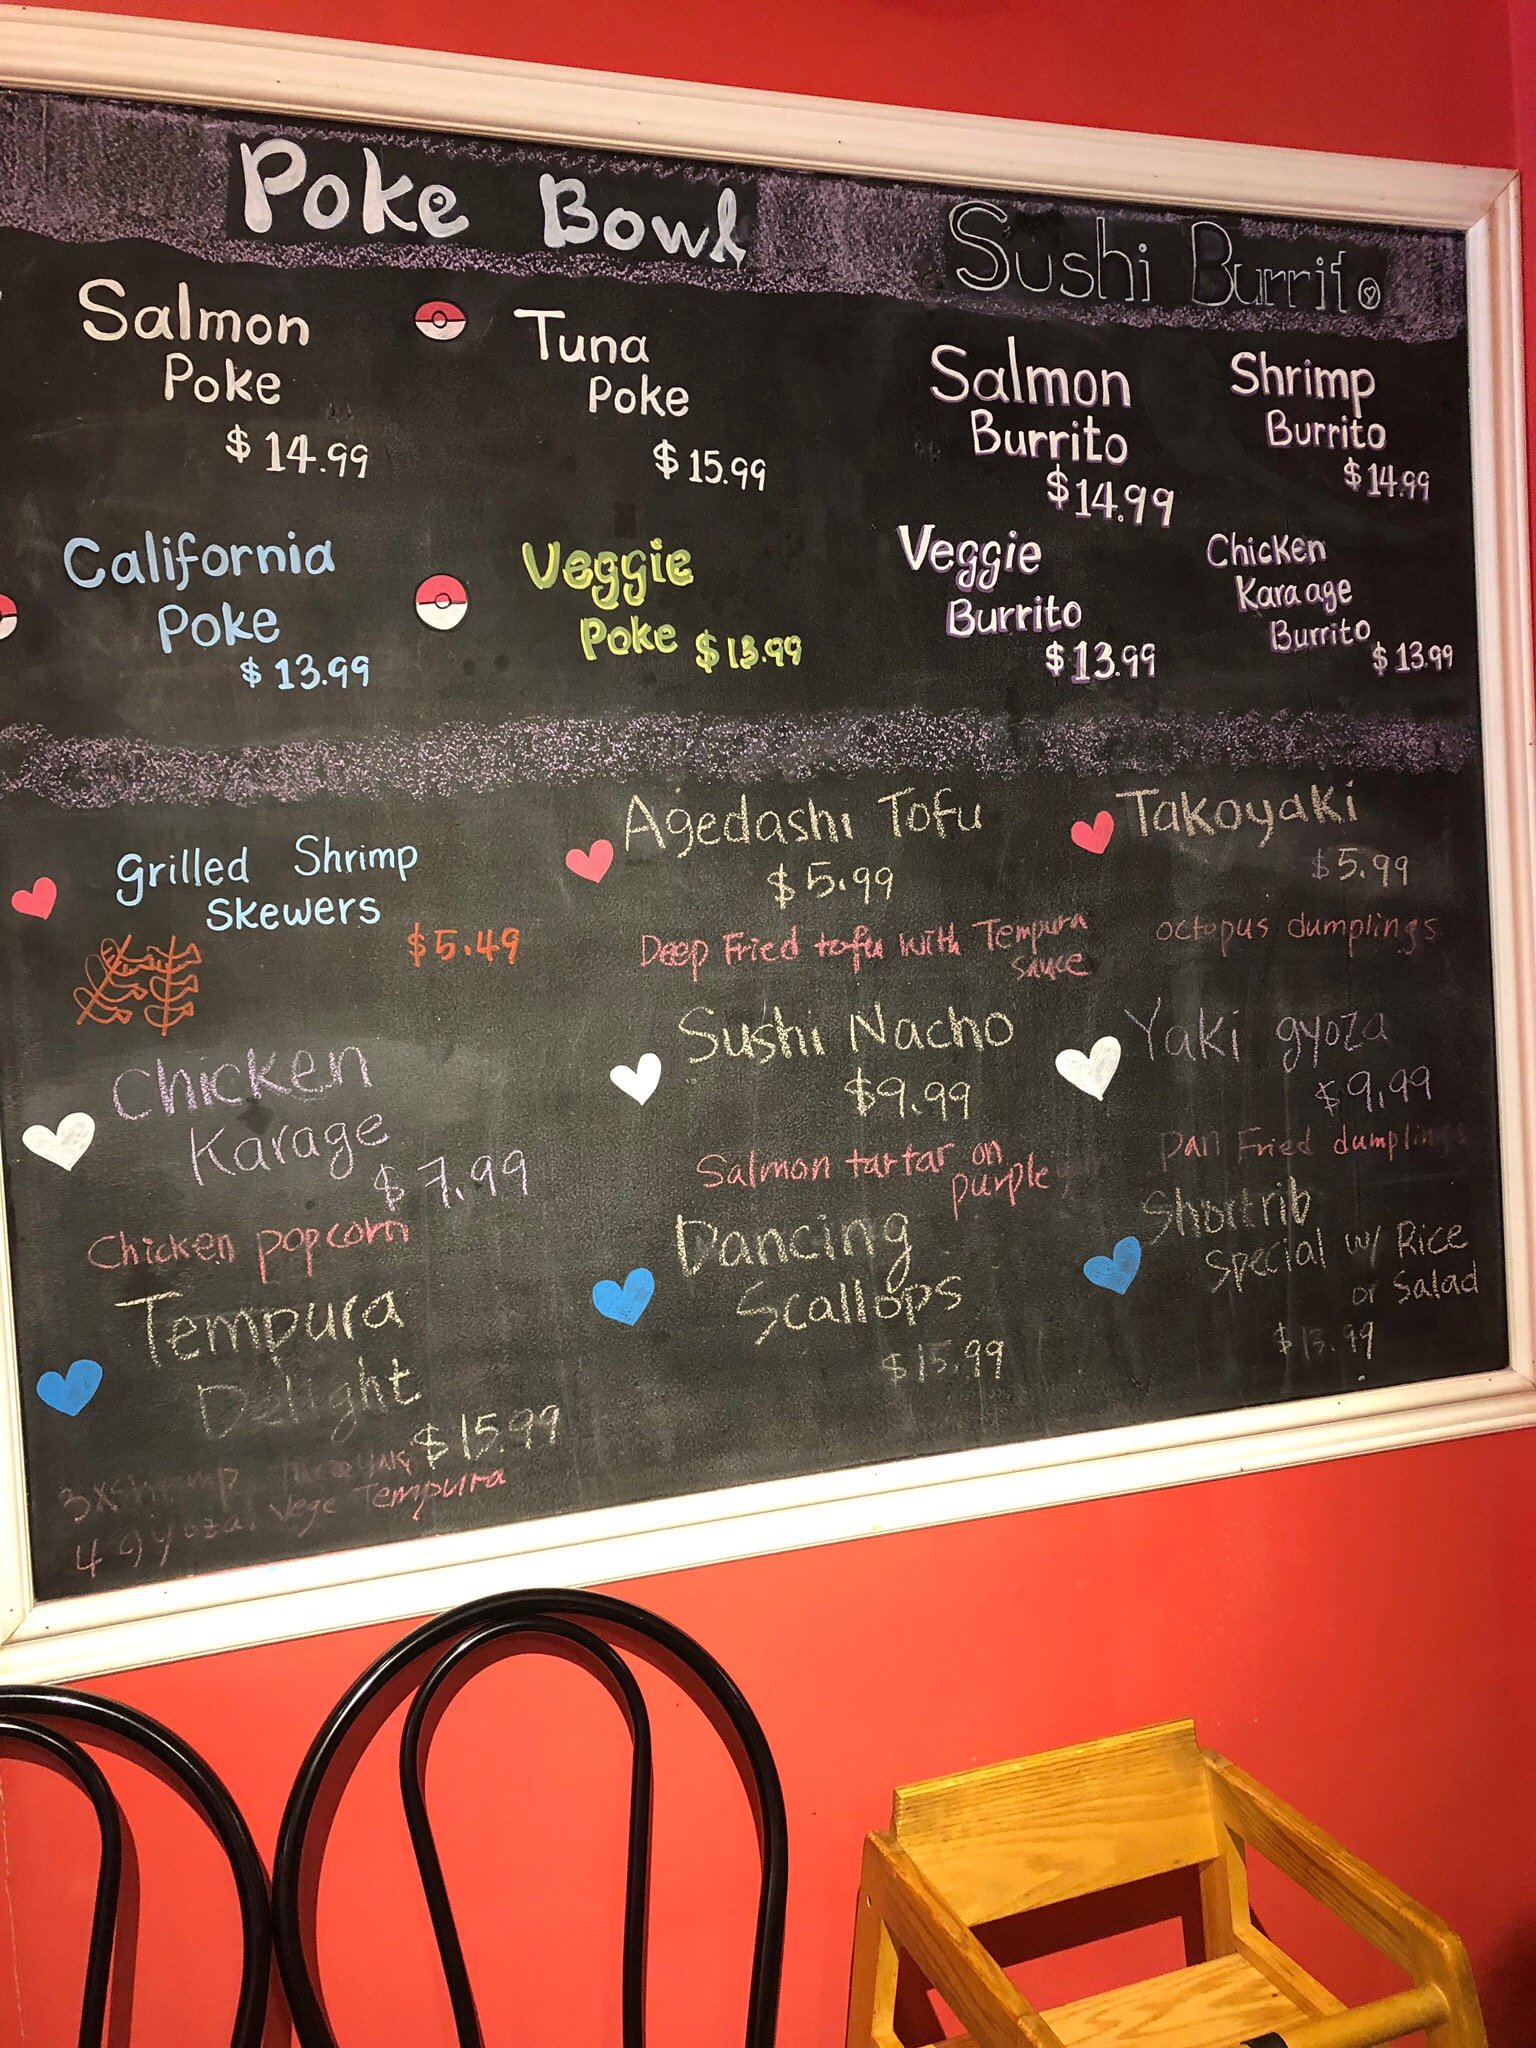 Poke Bowl
Sushi Burrito
Salmon
Poke
$14.99
Tuna
Poke
$15.99
California
Poke
$13.99
Veggie
Poke $13.99
Salmon
Burrito
$14.99
Shrimp
Burrito
$14.99
Veggie
Burrito
$13.99
Chicken
Karaage
Burrito
$13.99
grilled Shrimp
Skewers
$5.49
Chicken
Karage
$7.99
Chicken popcorn
Tempura
Delight
$15.99
3xshrimp
4 gyoza. Vege Tempura
Agedashi Tofu
$5.99
Deep Fried tofu with Tempura
sauce
Sushi Nacho
$9.99
Salmon tartar on
purple
Dancing
Scallops
$15.99
Takoyaki
$5.99
octopus dumplings
Yaki gyoza
$9.99
pan Fried dumplings
Shortrib
Special w/ Rice
or Salad
$13.99